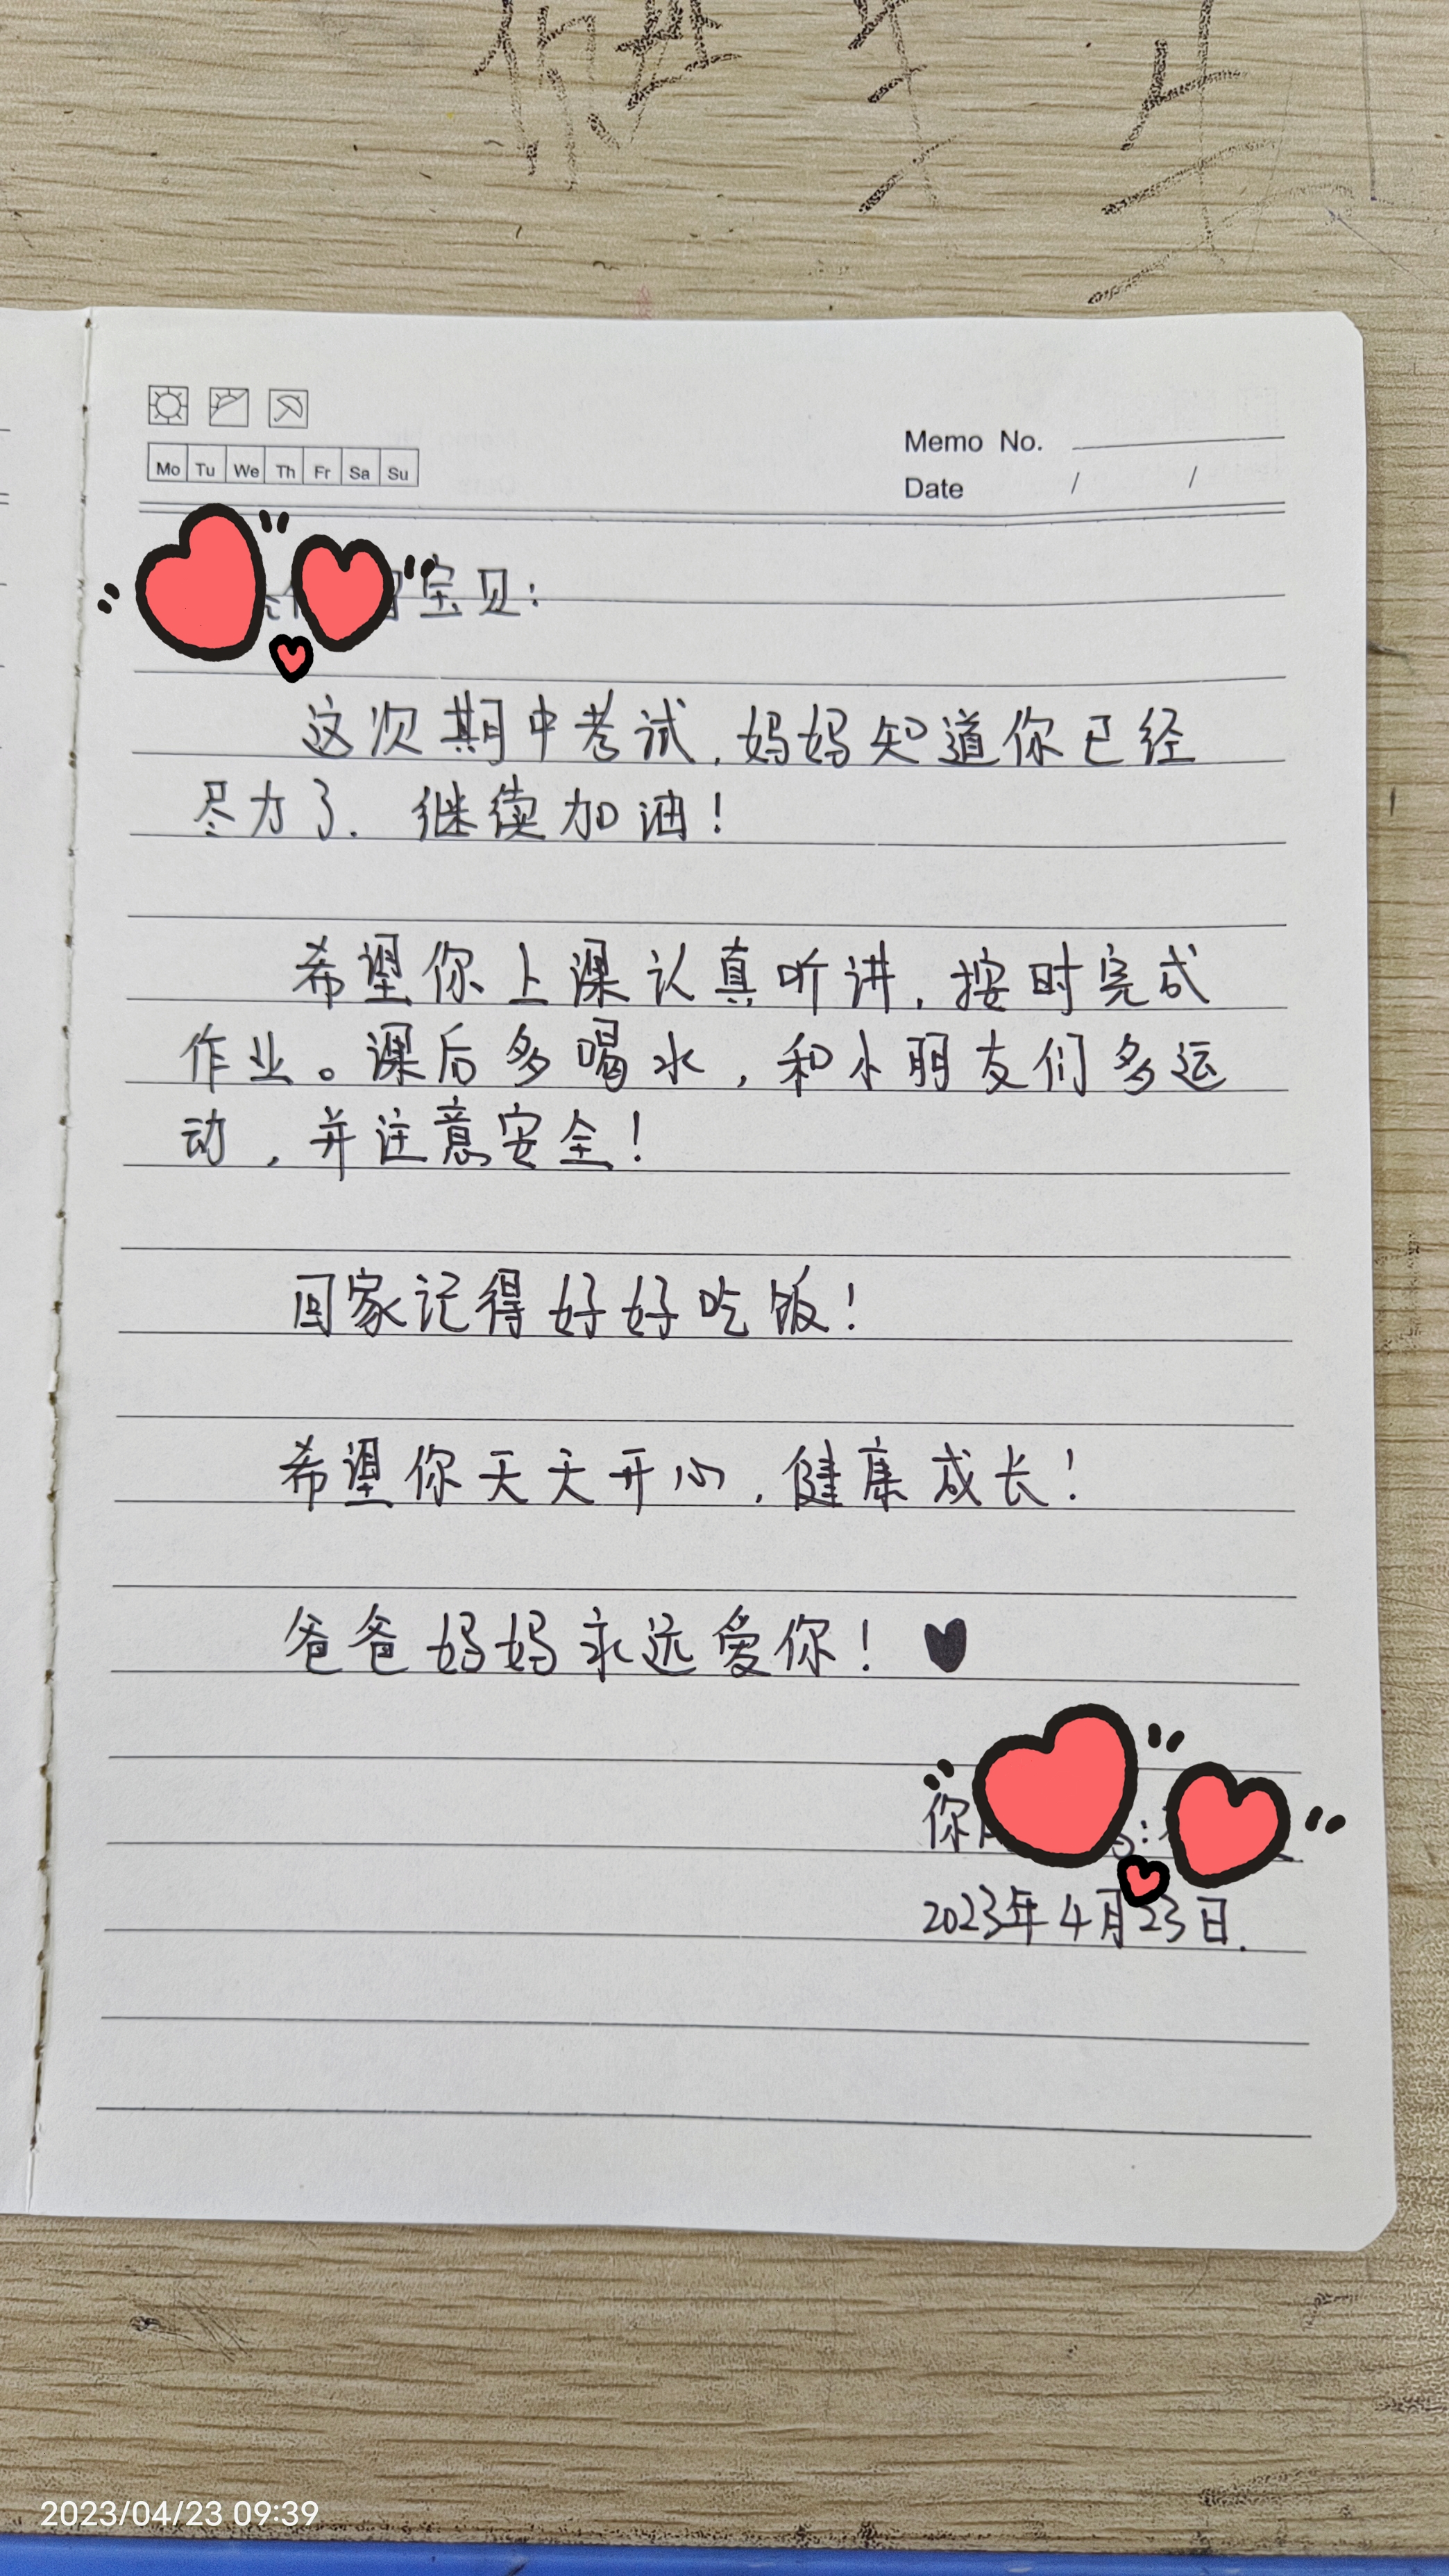 Memo No.
Mo Tu We Th Fr Sa Su
Date / /
宝贝:
这次期中考试,妈妈知道你已经
尽力了.继续加油!
希望你上课认真听讲,按时完成
作业。课后多喝水,和小朋友们多运
动,并注意安全!
回家记得好好吃饭!
希望你天天开心,健康成长!
爸爸妈妈永远爱你!
你
2023年4月23日.
2023/04/23 09:39